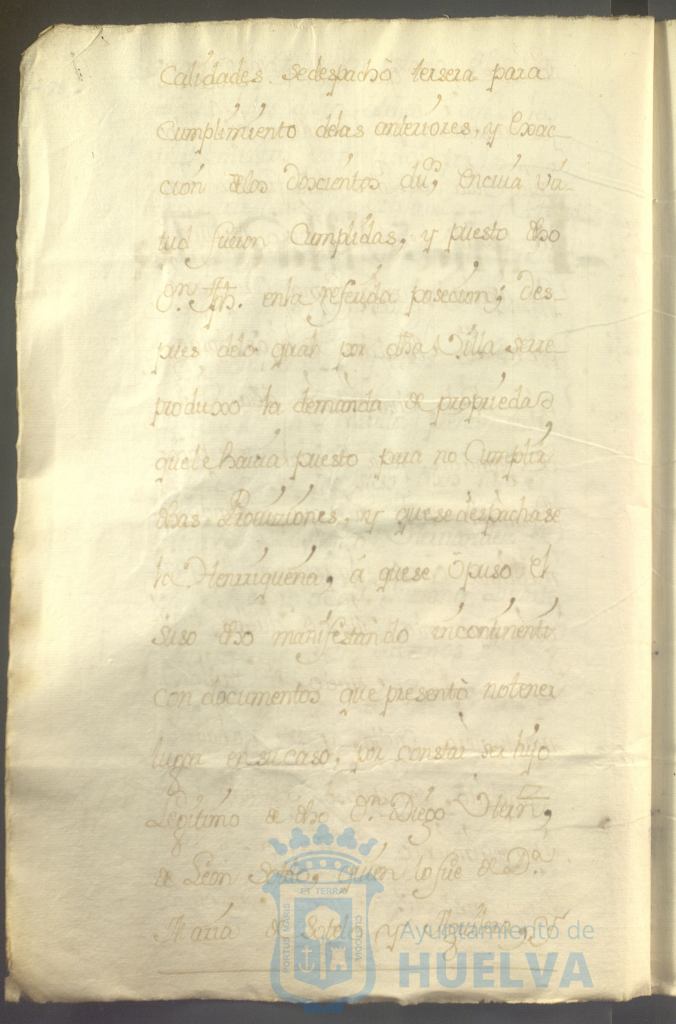 Calidades. sedespachò tersera para
Cumplimiento delas anteriores, y Exac-
cion delos Doscientos du.os, encuia vir-
tud fueron Cumplidas, y puesto dho
D.n Jph. enla referida posecion; des-
pues delo qual por dha Villa serre-
produxo la demanda de propriedad
quele havia puesto para no Cumplir
dhas Provisiones, y quesedespachase
la Henrriqueña, à quese Opuso el
suso dho manifestando incontinenti
con documentos que presentò notener
lugar en su caso, por constar ser hijo
Legitimo de dho D.n Diego Hern,
de Leon Sotelo, quien lo fue de D.a
Maria de Sotelo y Aguilera, D.n
Ayuntamiento de
HUELVA
PORTUS MARIS
ET TERRAE
CUSTODIA